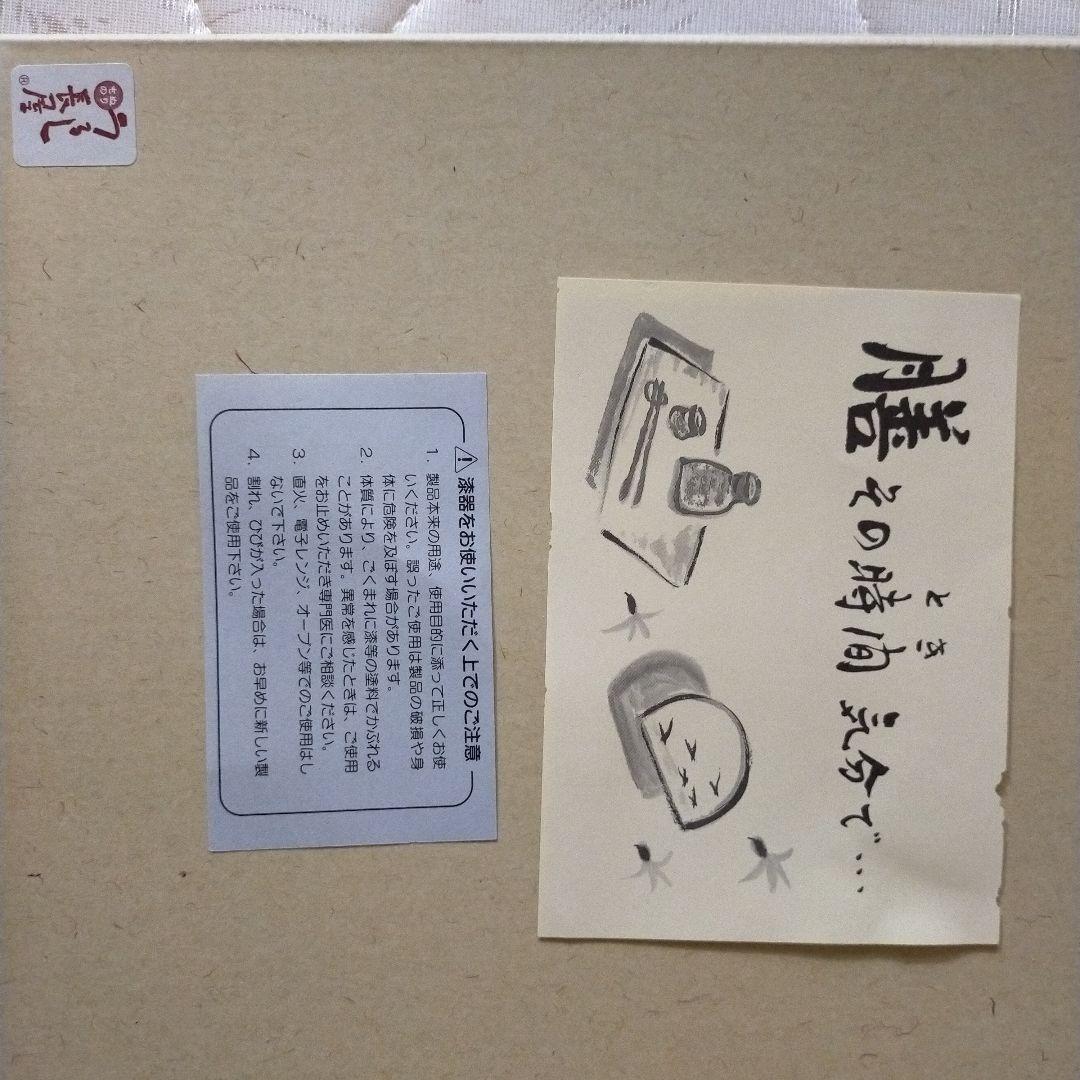 うるし
長屋
ぬり
もの
®
膳その時間気分で…
とき
漆器をお使いいただく上でのご注意
1. 製品本来の用途、使用目的に添って正しくお使
いください。誤ったご使用は製品の破損や身
体に危険を及ぼす場合があります。
2. 体質により、ごくまれに漆等の塗料でかぶれる
ことがあります。異常を感じたときは、ご使用
をお止めいただき専門医にご相談ください。
3. 直火、電子レンジ、オーブン等でのご使用はし
ないで下さい。
4. 割れ、ひびが入った場合は、お早めに新しい製
品をご使用下さい。